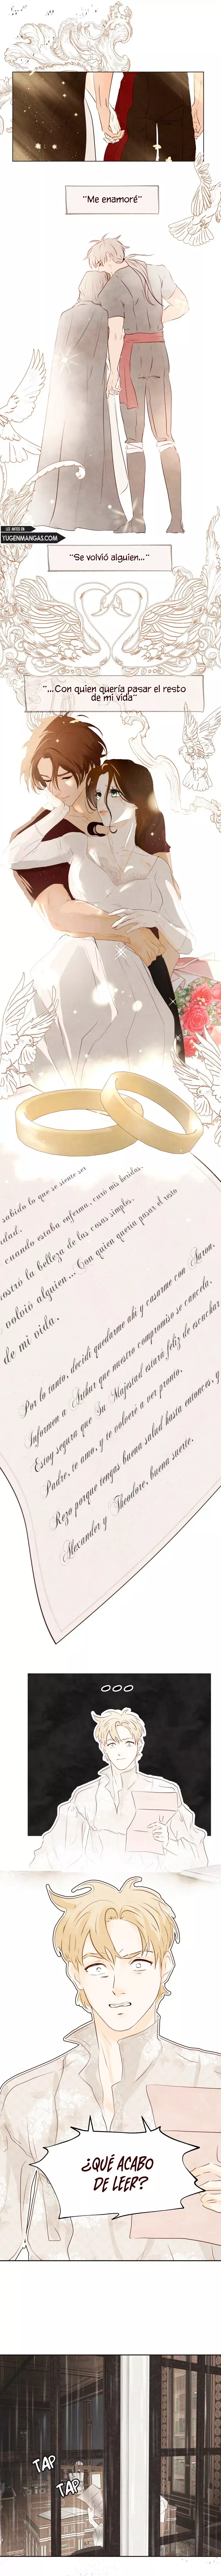 "Me enamoré"
LEE ANTES EN
YUGENMANGAS.COM
"Se volvió alguien..."
"...Con quien quería pasar el resto
de mi vida"
sabido lo que se siente ser
idad.
cuando estaba enferma, curó mis heridas,
mostró la belleza de las cosas simples.
volvió alguien... Con quien quería pasar el resto
de mi vida.
Por lo tanto, decidí quedarme ahí y casarme con Aaron.
Informen a Arthur que nuestro compromiso se cancela.
Estoy segura que Su Majestad estará feliz de escuchar
Padre, te amo, y te volveré a ver pronto.
Rezo porque tengas buena salud hasta entonces, y
Alexander y Theodore, buena suerte.
¿QUÉ ACABO
DE LEER?
TAP
TAP